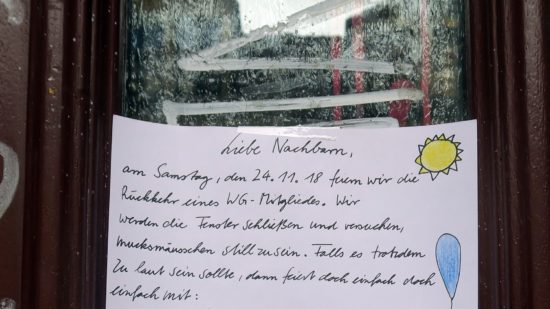 Liebe Nachbarn,
am Samstag, den 24.11.18 feiern wir die
Rückkehr eines WG-Mitgliedes. Wir
werden die Fenster schließen und versuchen,
mucksmäuschen still zu sein. Falls es trotzdem
zu laut sein sollte, dann feiert doch einfach doch
einfach mit: